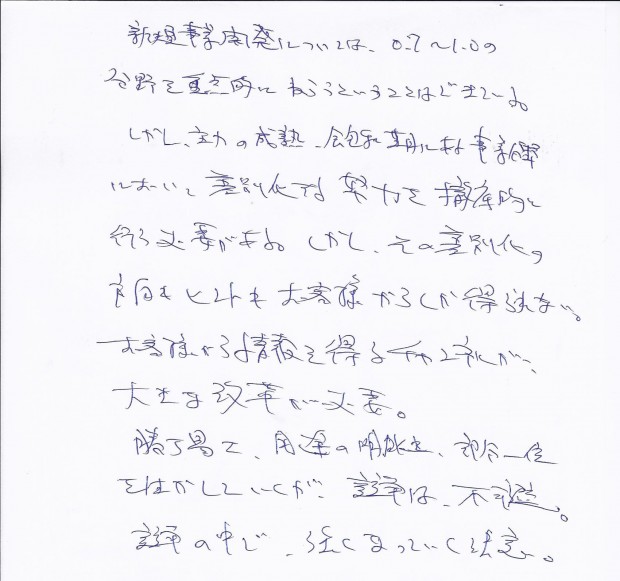 新規事業開発については、0.7〜1.0の
分野を重点的にねらうということはできている。
しかし、主力の成熟、飽和期にある事業群
において差別化する努力を構造的に
行う必要がある。しかし、その差別化の
方向もヒントもお客様からしか得られない。
お客様から情報を得るチャンネルが、
大きな改革が必要。
勝てる場で、用途の明確
を活かしていくが、競争は、不可避。
競争の中で、強くなっていく